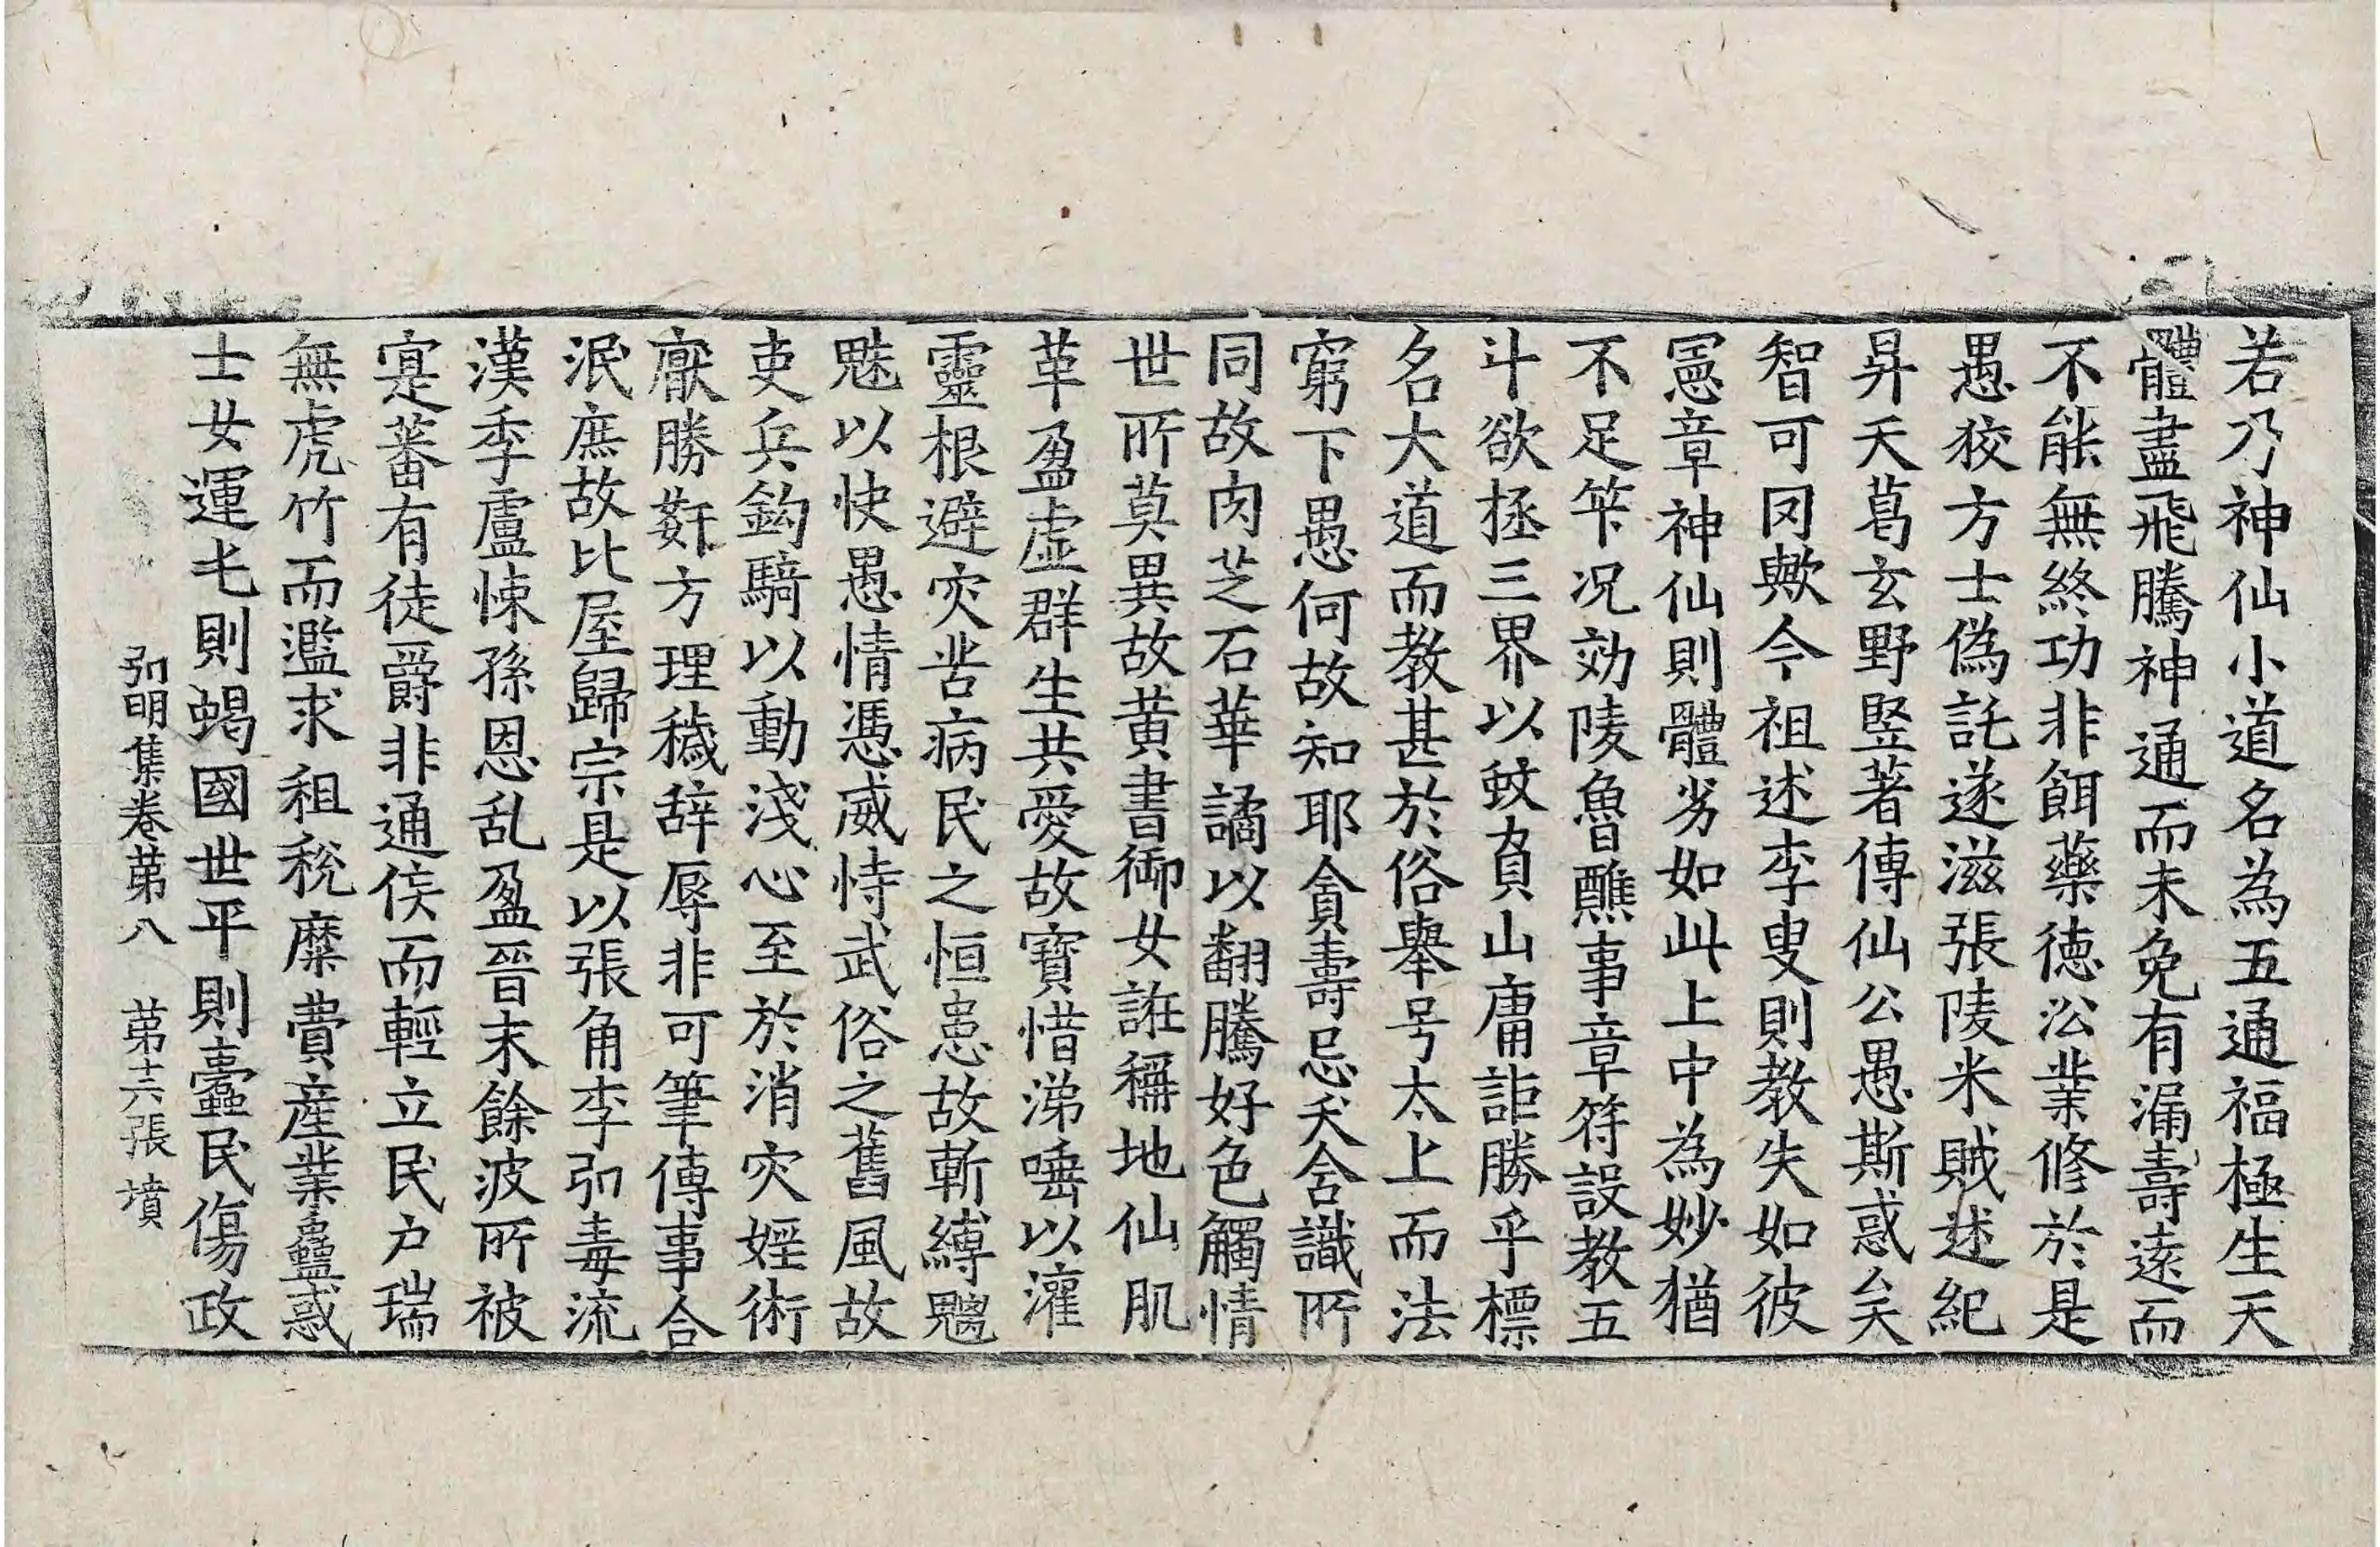 若乃神仙小道名為五通福極生天
體盡飛騰神通而未免有漏壽遠而
不能無終功非餌藥徳㳂業修於是
愚狡方士偽託遂滋張陵米賊述紀
昇天葛玄野竪著傳仙公愚斯惑矣
智可罔歟今祖述李叟則教失如彼
憲章神仙則體劣如此上中為妙猶
不足筭況効陵魯醮事章符設教五
斗欲拯三界以蚊負山庸詎勝乎標
名大道而教甚於俗舉号太上而法
窮下愚何故知耶貪壽忌夭含識所
同故肉芝石華譎以翻騰好色觸情
世所莫異故黄書御女誑稱地仙肌
革盈虚群生共愛故寳惜涕唾以灌
靈根避灾苦病民之恒患故斬縛魑
魅以快愚情憑威恃武俗之舊風故
吏兵鈎騎以動淺心至於消灾婬術
厭勝姧方理穢辭辱非可筆傳事合
泯庶故比屋歸宗是以張角李弘毒流
漢季盧悚孫恩乱盈晉末餘波所被
寔蕃有徒爵非通侯而輕立民户瑞
無虎竹而濫求租税糜費産業蠱惑
士女運屯則蝎國世平則蠹民傷政
弘明集卷第八　第十六張　墳